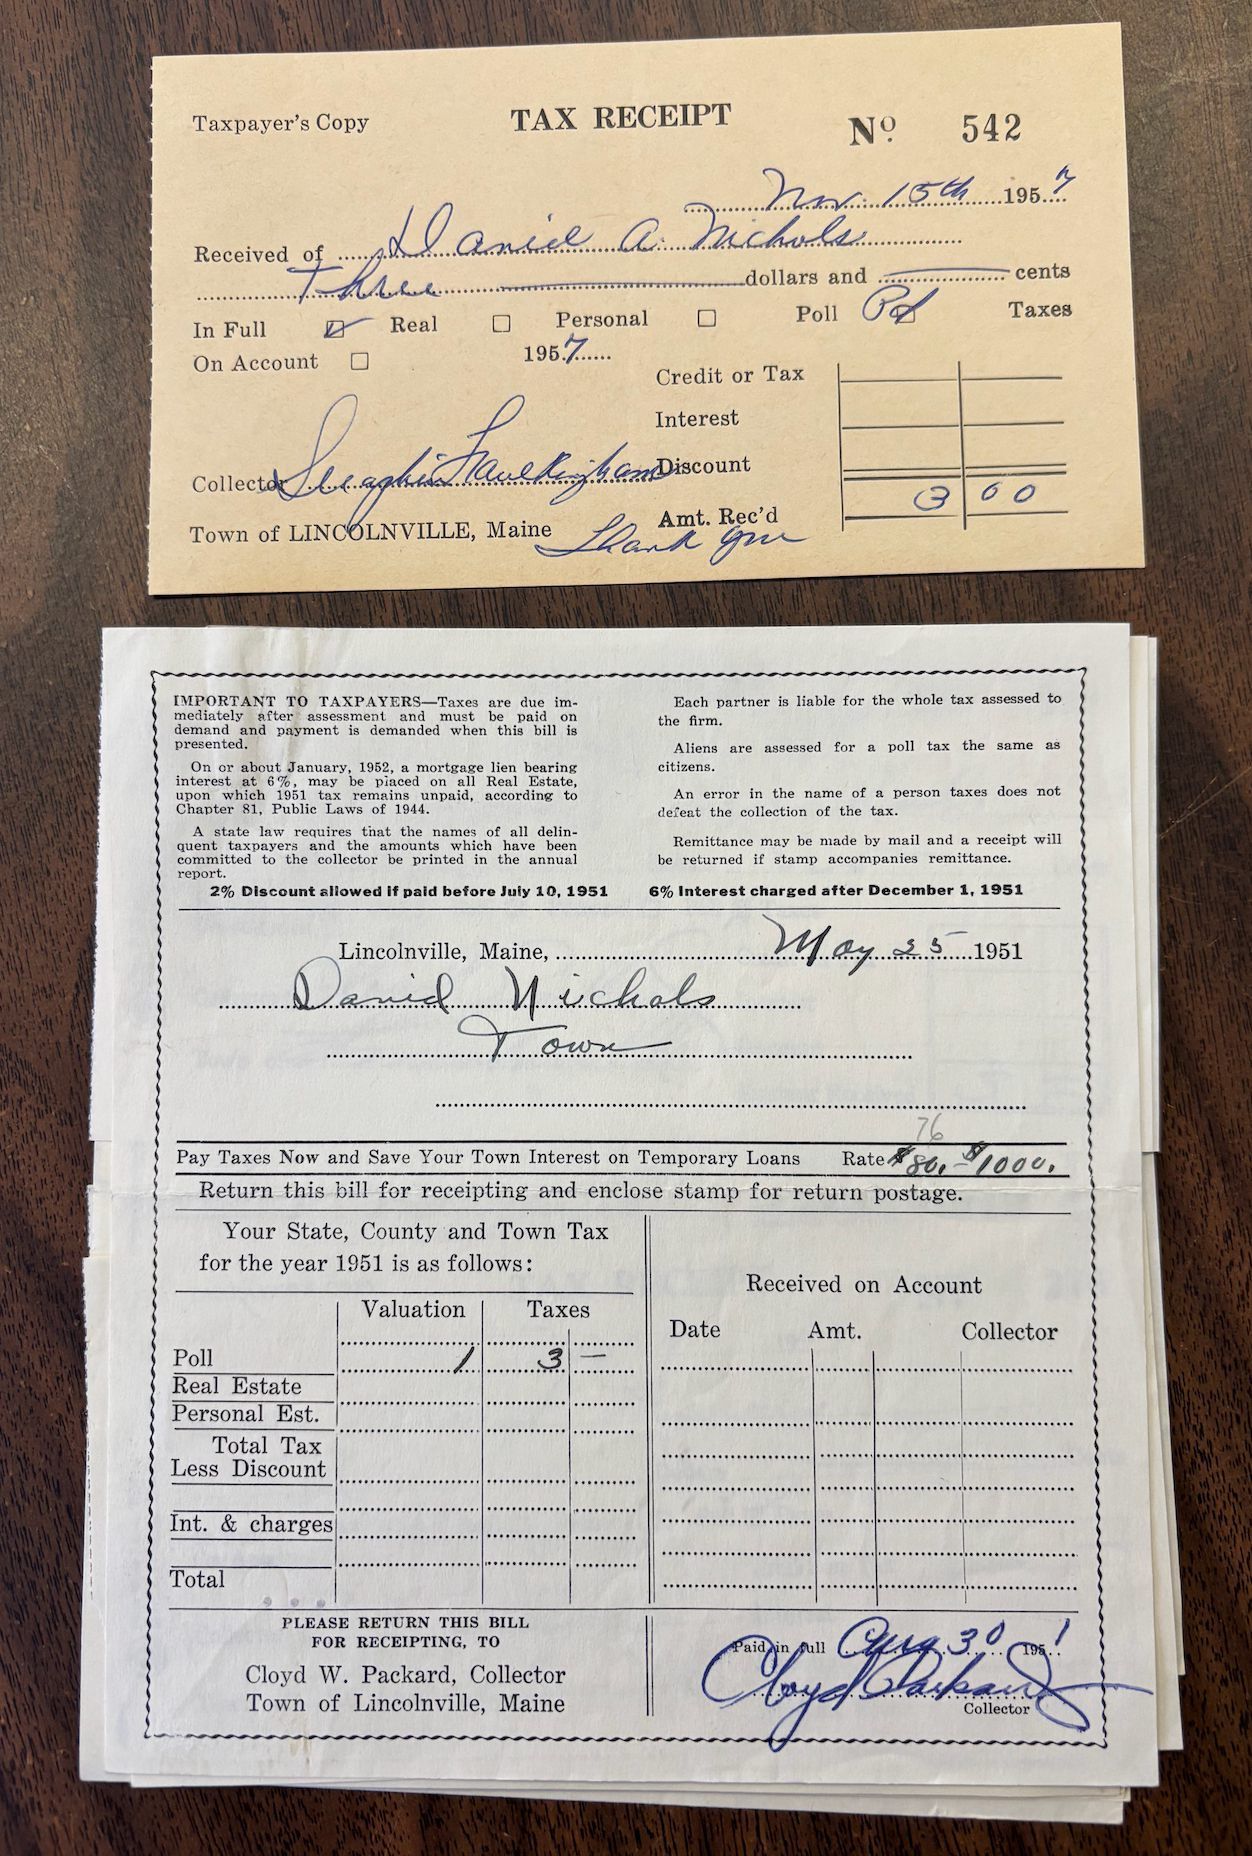 Taxpayer's Copy TAX RECEIPT Nº 542
Nov. 15th 1957
Received of Daniel A. Nichols
Three dollars and cents
In Full Real Personal Poll Pd Taxes
On Account 1957
Credit or Tax
Interest
Discount
Collector Seraphin Faulkingham
Amt. Rec'd 3 00
Town of LINCOLNVILLE, Maine
Thank you
IMPORTANT TO TAXPAYERS—Taxes are due im-
mediately after assessment and must be paid on
demand and payment is demanded when this bill is
presented.
On or about January, 1952, a mortgage lien bearing
interest at 6%, may be placed on all Real Estate,
upon which 1951 tax remains unpaid, according to
Chapter 81, Public Laws of 1944.
A state law requires that the names of all delin-
quent taxpayers and the amounts which have been
committed to the collector be printed in the annual
report.
2% Discount allowed if paid before July 10, 1951
Each partner is liable for the whole tax assessed to
the firm.
Aliens are assessed for a poll tax the same as
citizens.
An error in the name of a person taxes does not
defeat the collection of the tax.
Remittance may be made by mail and a receipt will
be returned if stamp accompanies remittance.
6% Interest charged after December 1, 1951
Lincolnville, Maine, May 25 1951
David Nichols
Town
76
Pay Taxes Now and Save Your Town Interest on Temporary Loans Rate $80. - $1000.
Return this bill for receipting and enclose stamp for return postage.
Your State, County and Town Tax
for the year 1951 is as follows:
Valuation Taxes
Poll 1 3 —
Real Estate
Personal Est.
Total Tax
Less Discount
Int. & charges
Total
Received on Account
Date Amt. Collector
PLEASE RETURN THIS BILL
FOR RECEIPTING, TO
Cloyd W. Packard, Collector
Town of Lincolnville, Maine
Paid in full Aug 30 1951
Cloyd Packard
Collector